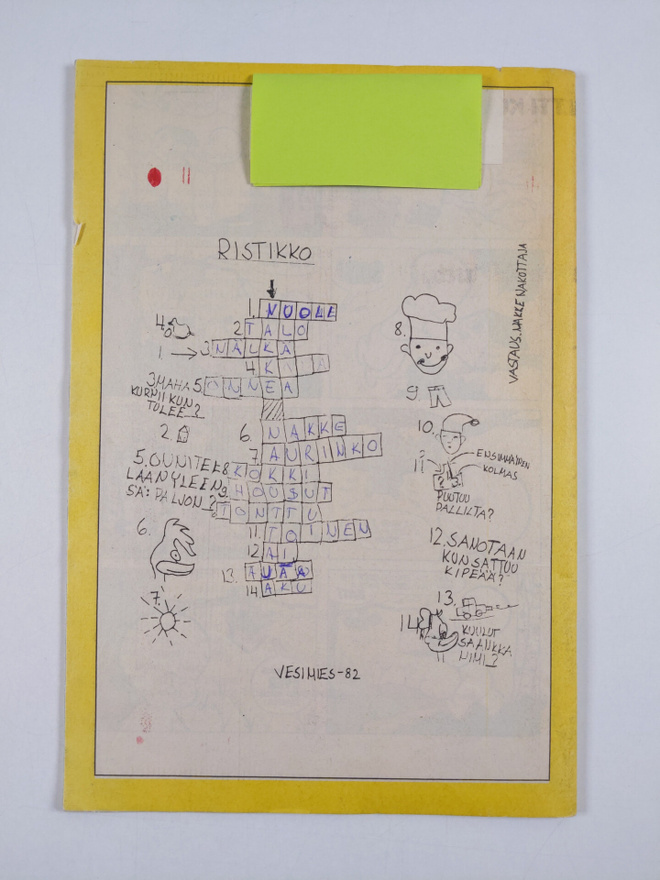 RISTIKKO
1. NUOLI
2 TALO
3 NÄLKÄ
4
5 ONNEA
6. NAKKE
7. AURINKO
8 KOKKI
9 HOUSUT
TONTTU
11. TOINEN
12 AI
13.
14 AKU
4.
1.
3. MAHA
KURNII KUN
TULEE?
2.
5. ONNITEL-
LAAN YLEEN-
SÄ: PALJON?
6.
7.
8.
9.
10.
11
ENSIMMÄINEN
KOLMAS
? 3.
PUUTUU
PALLILTA?
12. SANOTAAN
KUN SATTUU
KIPEÄÄ?
13.
14.
KUULUT
SAANKKA
NIMI?
VASTAUS. NAKKE NAKOTTAJA
VESIMIES-82